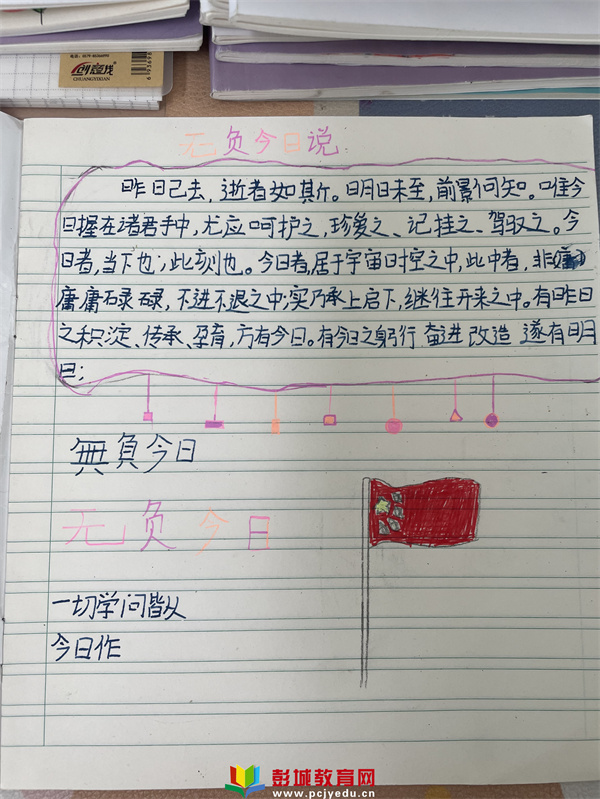 创意线
CHUANGYIXIAN
无负今日说:
昨日已去,逝者如斯。明日未至,前景何知。唯今
日握在诸君手中,尤应呵护之,珍爱之、记挂之、驾驭之。今
日者,当下也;此刻也。今日者,居于宇宙时空之中,此中者,非
庸庸碌碌,不进不退之中;实乃承上启下,继往开来之中。有昨日
之积淀、传承、孕育,方有今日。有今日之躬行 奋进 改造 遂有明
日;
無負今日
无负今日
一切学问皆从
今日作
彭城教育网
www.pcjyedu.cn